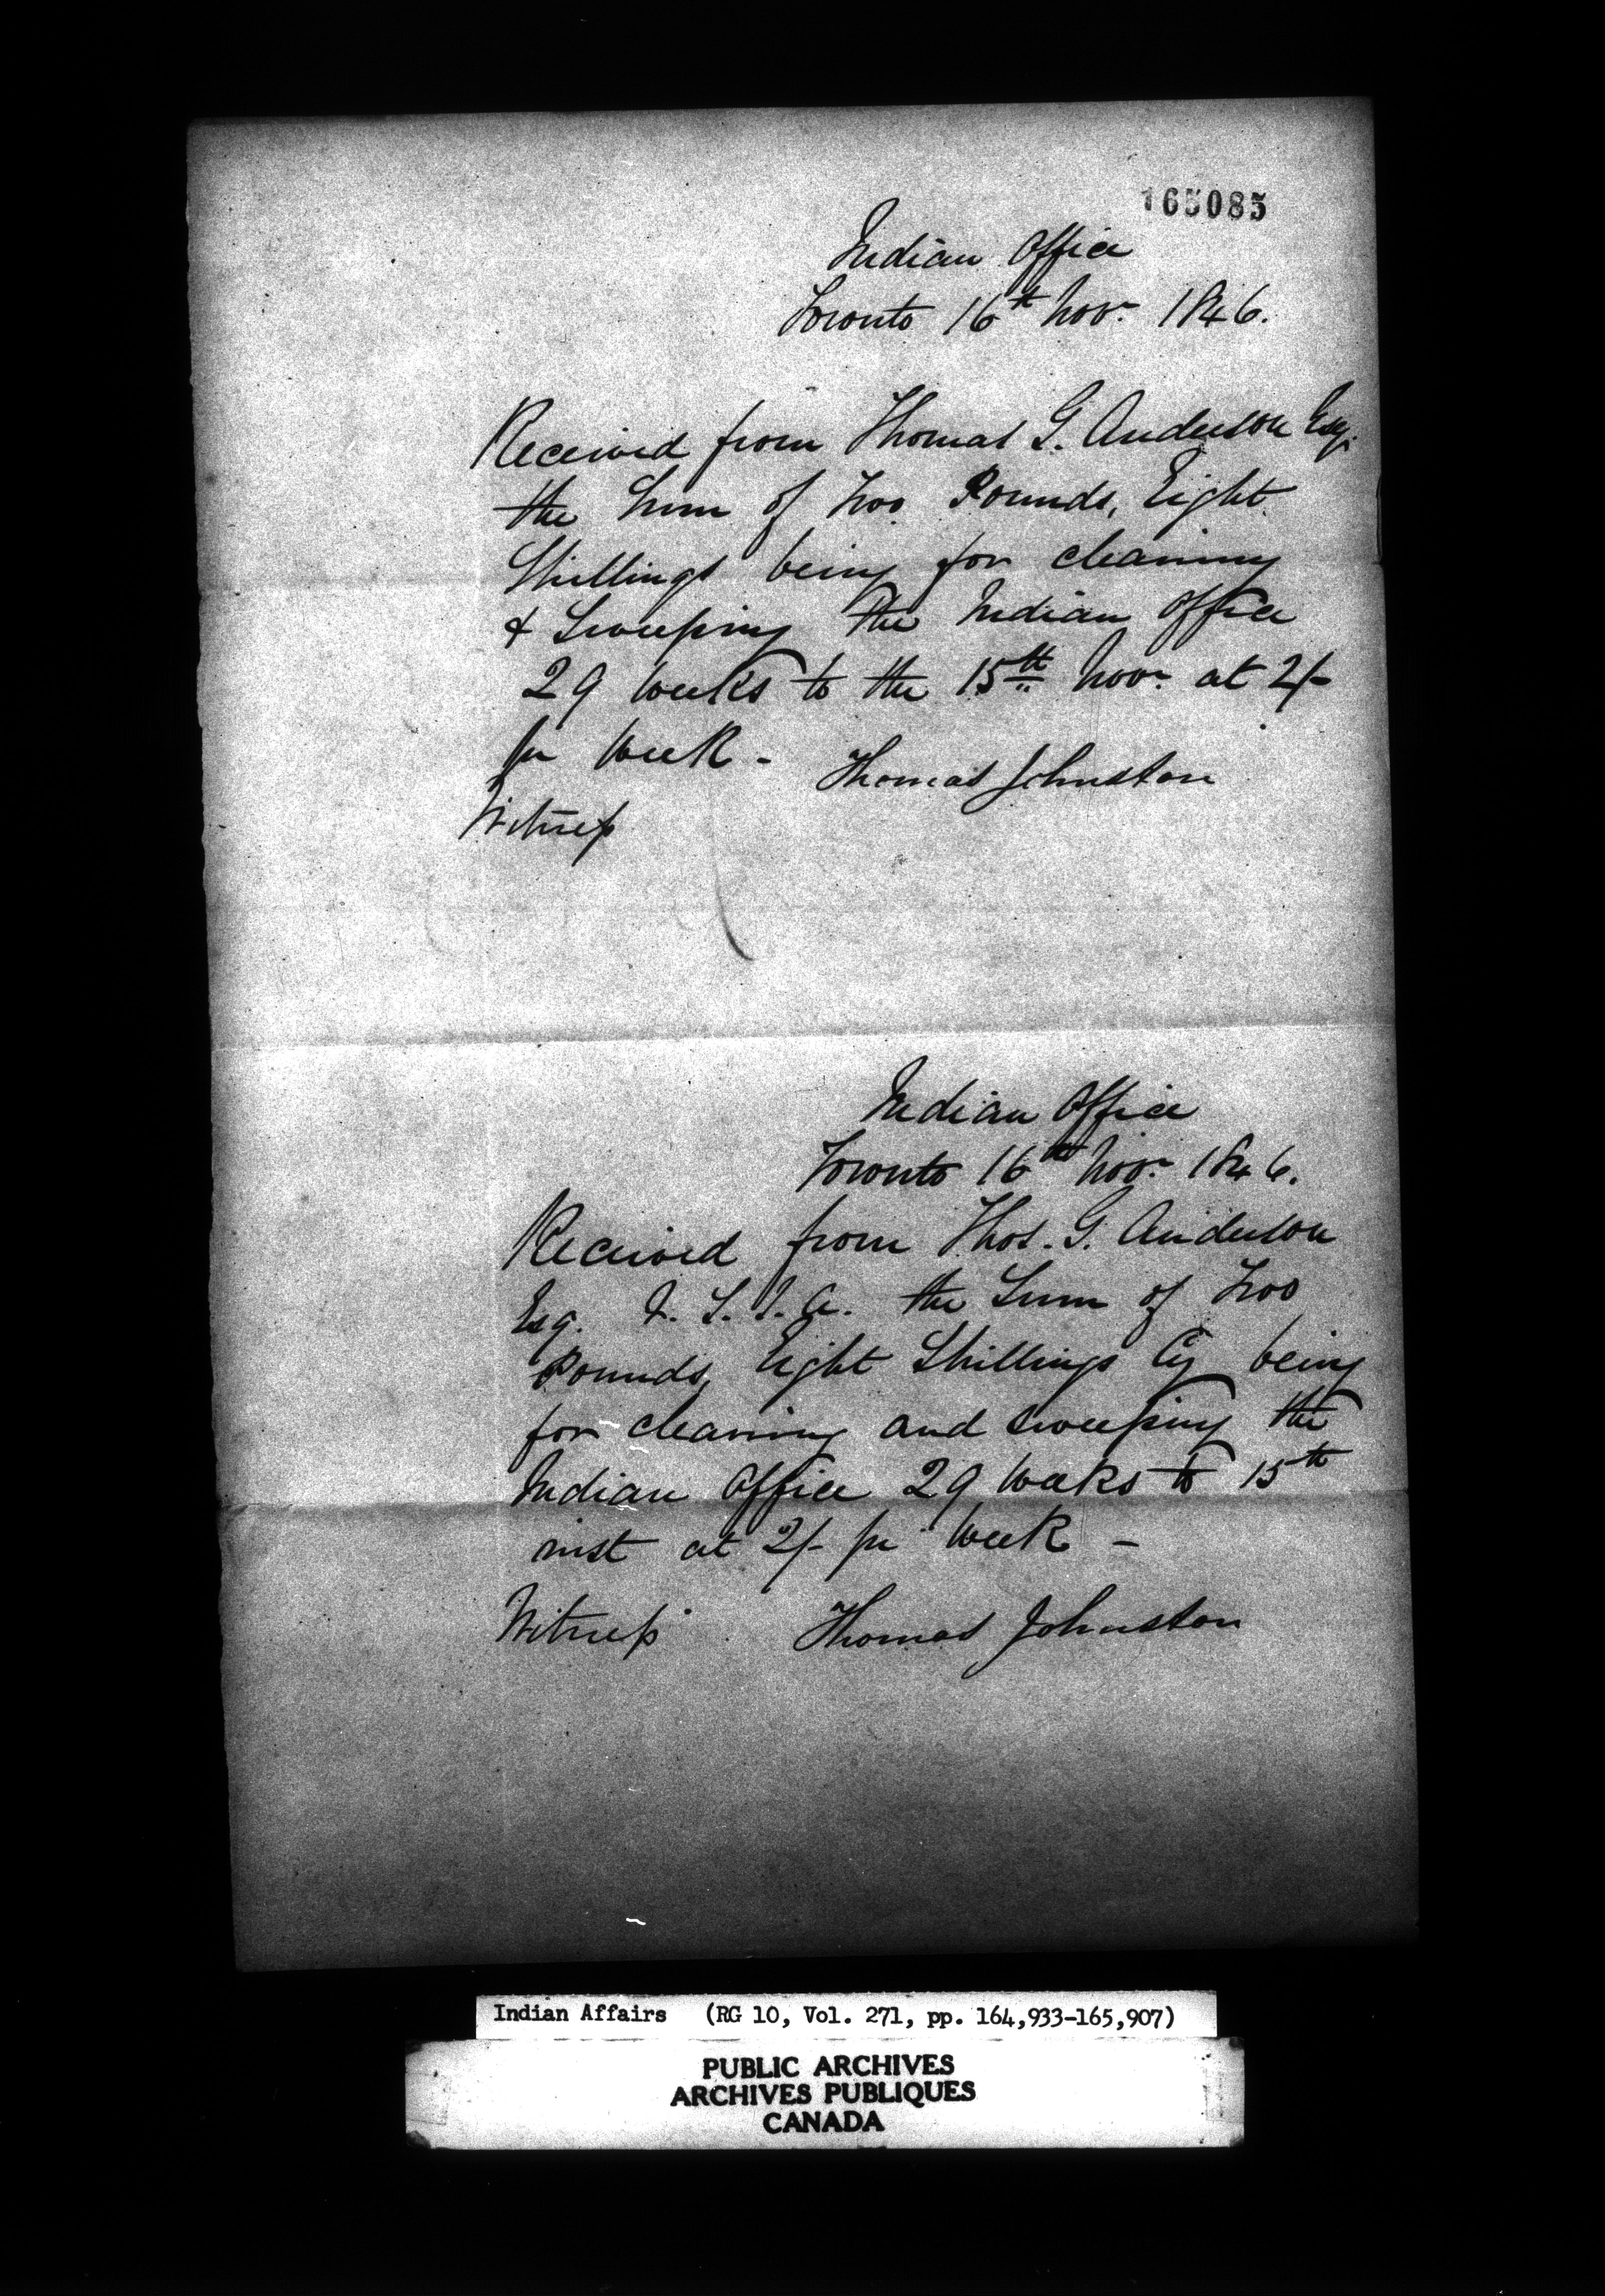 165085
Indian Office
Toronto 16th Novr. 1846.
Received from Thomas G. Anderson Esq.
the Sum of Two Pounds, Eight
Shillings being for cleaning
& Sweeping the Indian Office
29 Weeks to the 15th Novr. at 2/-
pr Week -
Thomas Johnston
Witness
Indian Office
Toronto 16th Novr. 1846.
Received from Thos. G. Anderson
Esq. V. S. I. A. the Sum of Two
Pounds, Eight Shillings Cy being
for cleaning and sweeping the
Indian Office 29 Weeks to 15th
inst at 2/- pr Week -
Witness Thomas Johnston
Indian Affairs (RG 10, Vol. 271, pp. 164,933-165,907)
PUBLIC ARCHIVES
ARCHIVES PUBLIQUES
CANADA